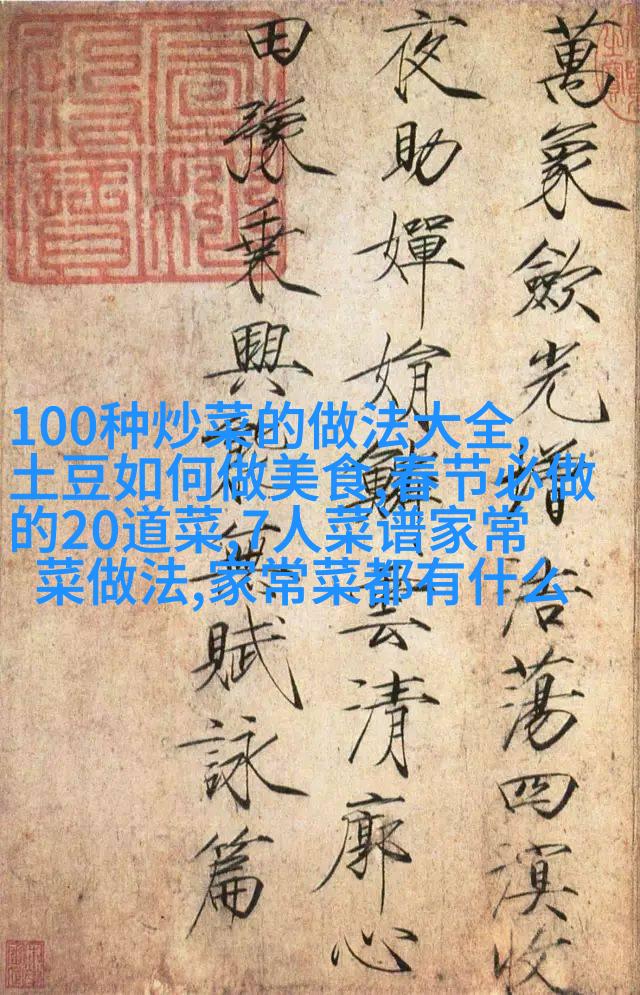 100种炒菜的做法大全,
土豆如何做美食,春节必做
的20道菜,7人菜谱家常
菜做法,家常菜都有什么
萬象歛光增浩蕩四溟收
夜助嬋娟鱗雲清廓心
田豫乘興能無賦詠篇